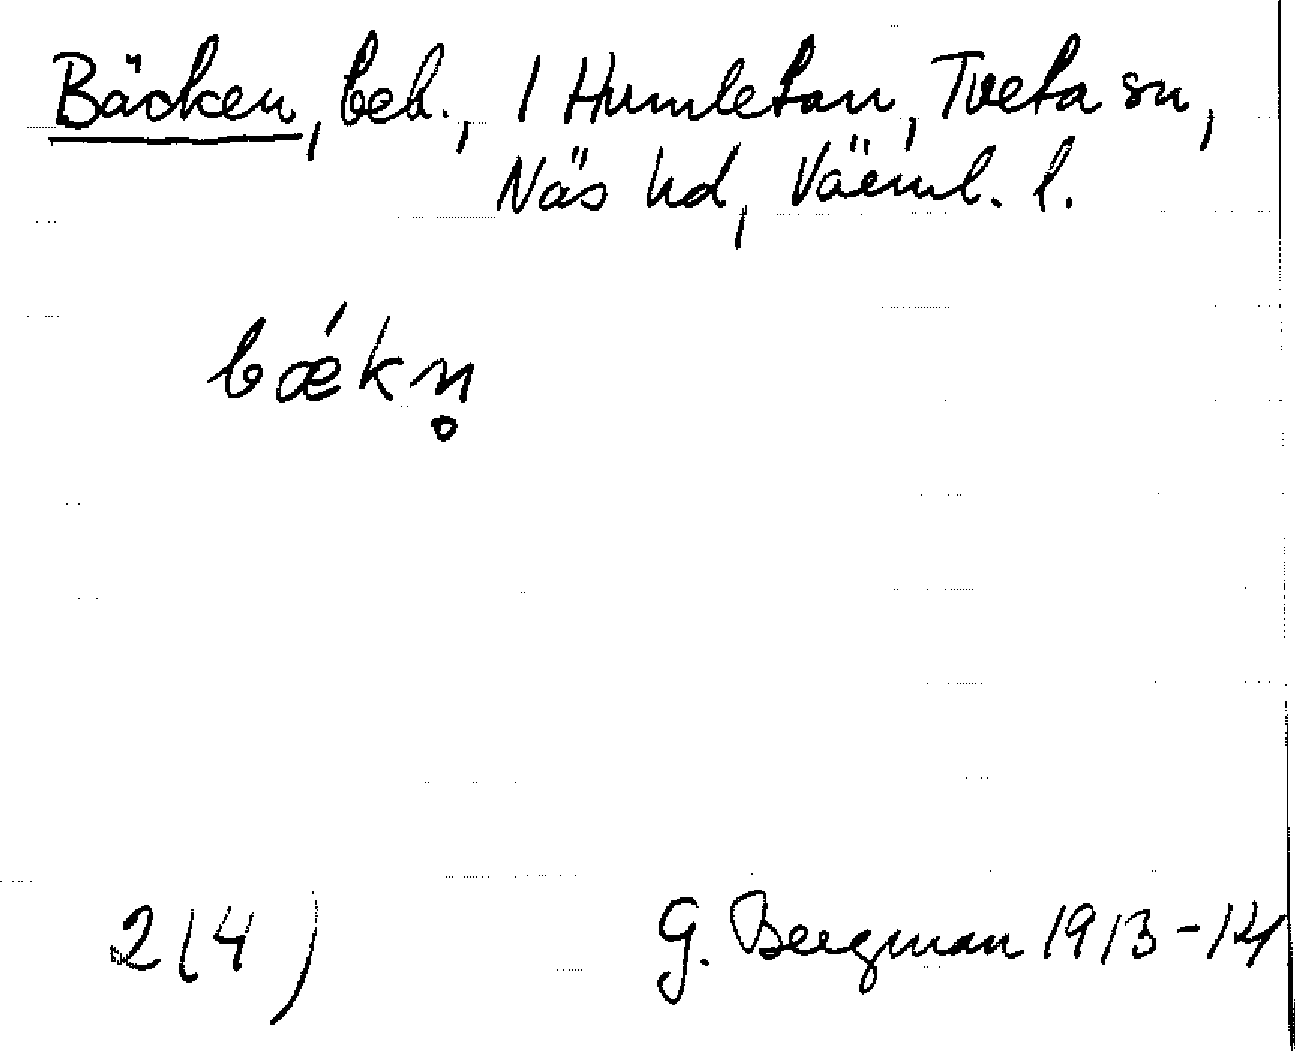 Bäcken, beb., 1 Humletan, Tveta sn,
Näs hd, Värml. l.
bǽkn̥
2(4)
G. Bergman 1913-14